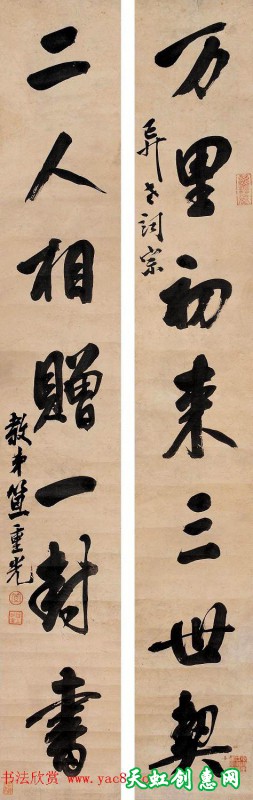 万里初来三世契
老詞宗
二人相贈一封書
教弟笪重光
书法欣赏 www.yac8
天虹创惠网